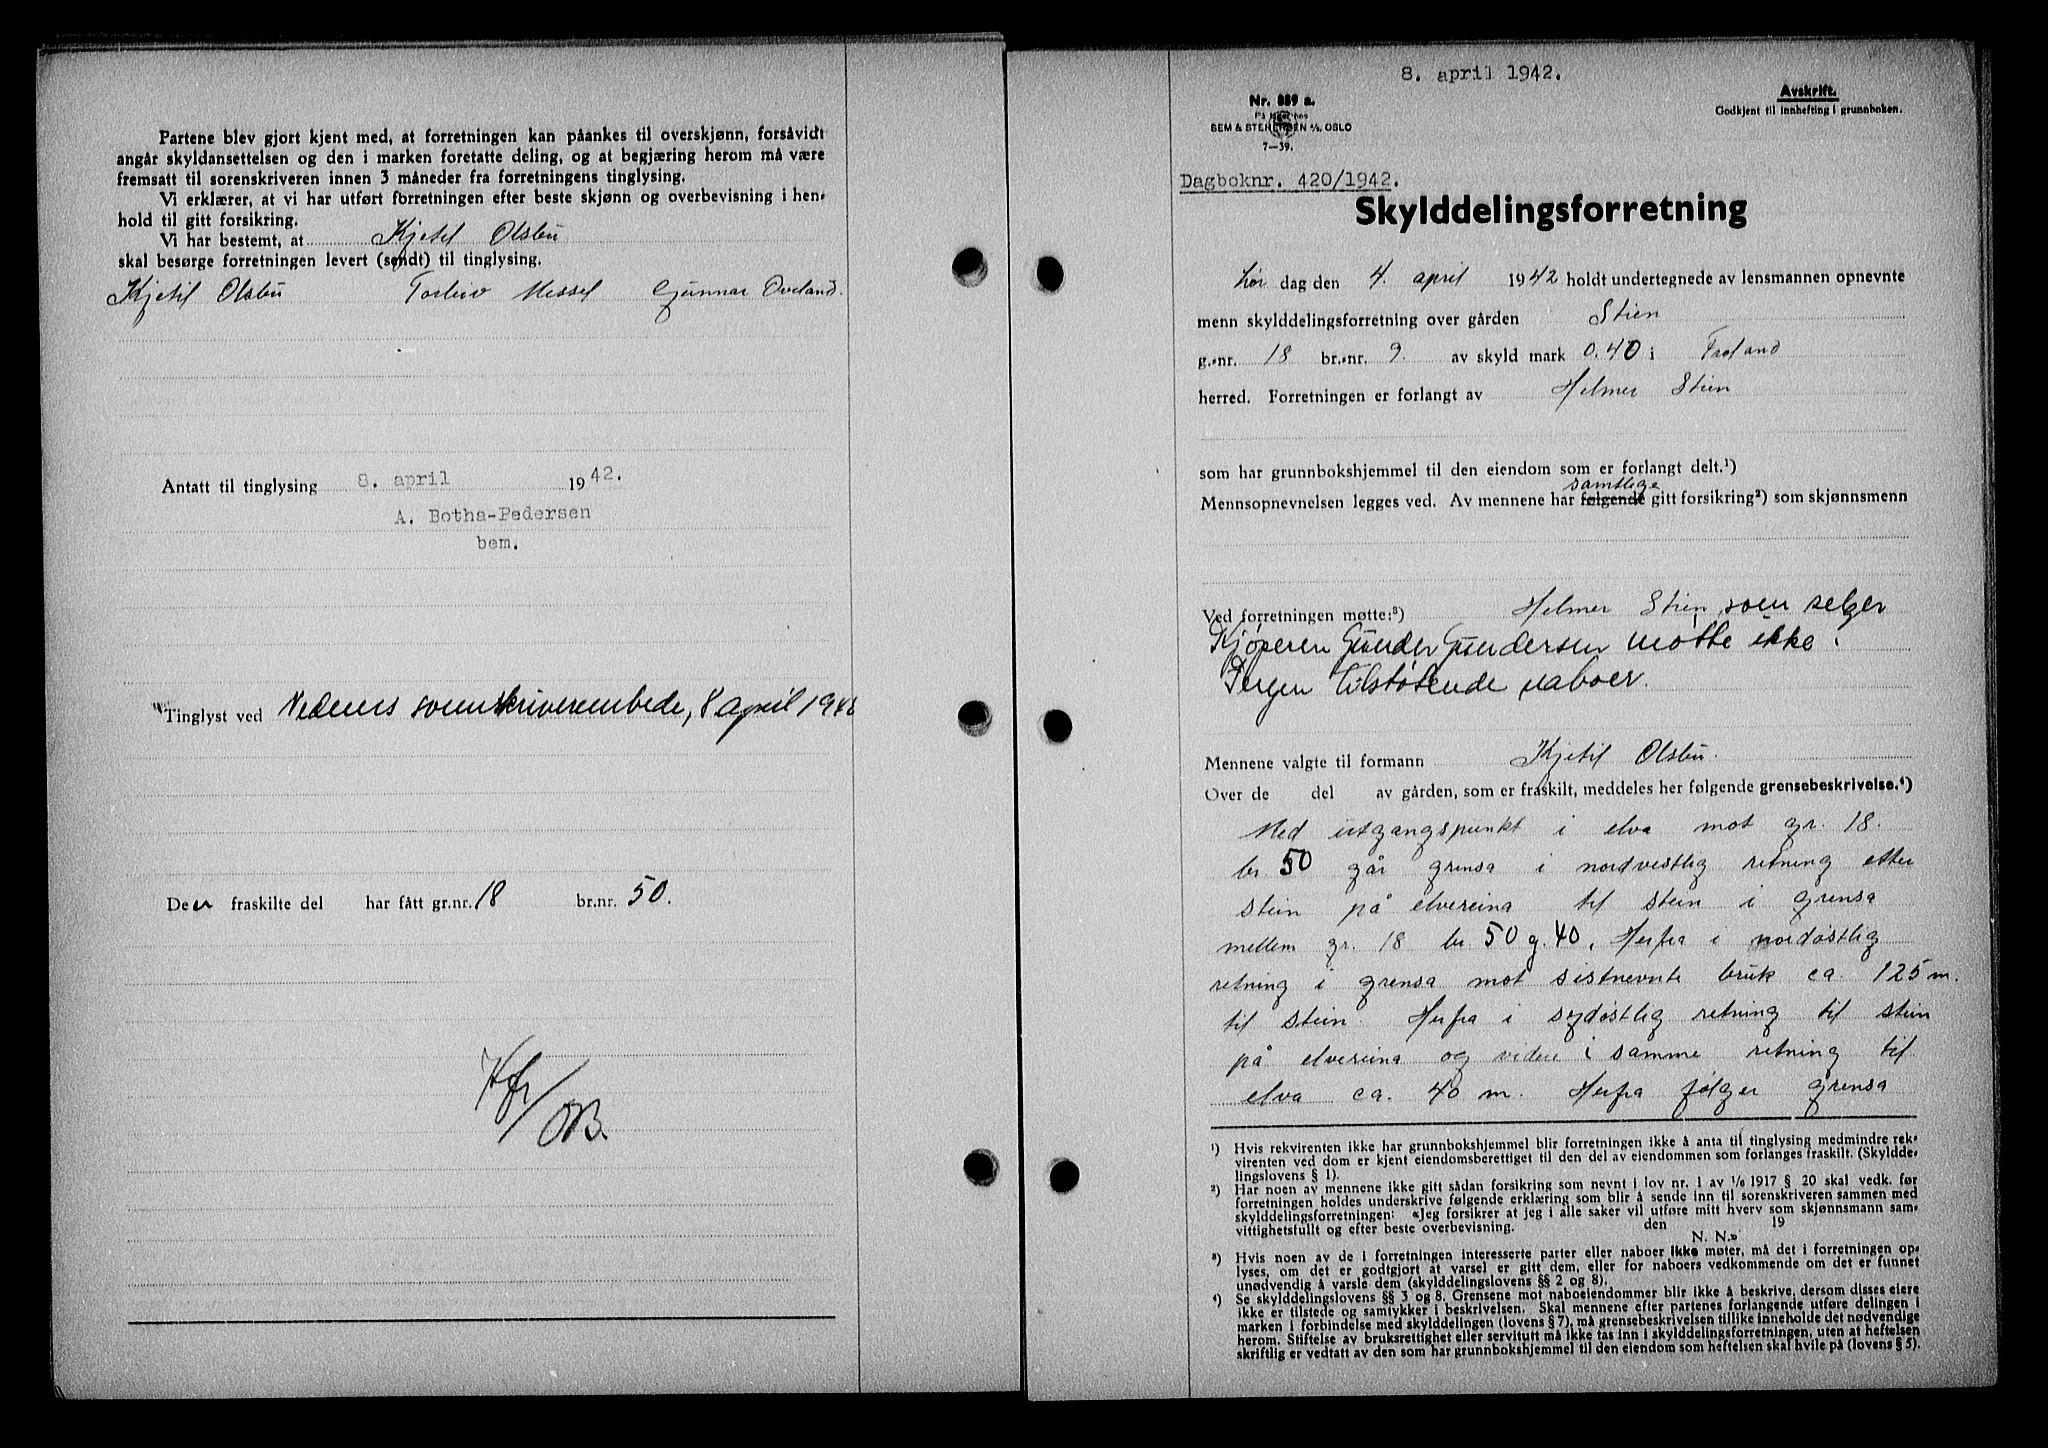 Partene blev gjort kjent med, at forretningen kan påankes til overskjønn, forsåvidt
angår skyldansettelsen og den i marken foretatte deling, og at begjæring herom må være
fremsatt til sorenskriveren innen 3 måneder fra forretningens tinglysing.
Vi erklærer, at vi har utført forretningen efter beste skjønn og overbevisning i hen-
hold til gitt forsikring.
Vi har bestemt, at Kjetil Olsbu
skal besørge forretningen levert (sendt) til tinglysing.
Kjetil Olsbu Torleiv Messel Gunnar Oveland.
Antatt til tinglysing 8. april 1942.
A. Botha-Pedersen
bem.
Tinglyst ved Nedenes sorenskriverembede, 8 april 1942
Den fraskilte del har fått gr.nr. 18 br.nr. 50.
8. april 1942.
Nr. 889 a.
På lager hos
SEM & STENERSEN A/S. OSLO
7—39.
Avskrift.
Godkjent til innhefting i grunnboken.
Dagboknr. 420/1942.
Skylddelingsforretning
Lør dag den 4. april 1942 holdt undertegnede av lensmannen opnevnte
menn skylddelingsforretning over gården Stien
g.-nr. 18 br.-nr. 9. av skyld mark 0.40 i Froland
herred. Forretningen er forlangt av Helmer Stien
som har grunnbokshjemmel til den eiendom som er forlangt delt.¹)
samtlige
Mennsopnevnelsen legges ved. Av mennene har følgende gitt forsikring²) som skjønnsmenn
Ved forretningen møtte:³) Helmer Stien, som selger
Kjøperen Gunder Gundersen møtte ikke.
Ingen tilstøtende naboer.
Mennene valgte til formann Kjetil Olsbu.
Over de del av gården, som er fraskilt, meddeles her følgende grensebeskrivelse.⁴)
Med utgangspunkt i elva mot gr. 18.
br 50 går grensa i nordvestlig retning etter
stein på elvereina til stein i grensa
mellem gr. 18 br 50 og 40. Herfra i nordøstlig
retning i grensa mot sistnevnte bruk ca. 125 m.
til stein. Herfra i sydøstlig retning til stein
på elvereina og videre i samme retning til
elva ca. 40 m. Herfra følger grensa
¹) Hvis rekvirenten ikke har grunnbokshjemmel blir forretningen ikke å anta til tinglysing medmindre rek-
virenten ved dom er kjent eiendomsberettiget til den del av eiendommen som forlanges fraskilt. (Skyldde-
lingslovens § 1).
²) Har noen av mennene ikke gitt sådan forsikring som nevnt i lov nr. 1 av 1/6 1917 § 20 skal vedk. før
forretningen holdes underskrive følgende erklæring som blir å sende inn til sorenskriveren sammen med
skylddelingsforretningen: «Jeg forsikrer at jeg i alle saker vil utføre mitt hverv som skjønnsmann sam-
vittighetsfullt og efter beste overbevisning. den 19
N. N.»
³) Hvis noen av de i forretningen interesserte parter eller naboer ikke møter, må det i forretningen op-
lyses, om det er godtgjort at varsel er gitt dem, eller for naboers vedkommende om det er funnet
unødvendig å varsle dem (skylddelingslovens §§ 2 og 8).
⁴) Se skylddelingslovens §§ 3 og 8. Grensene mot naboeiendommer blir ikke å beskrive, dersom disses eiere
ikke er tilstede og samtykker i beskrivelsen. Skal mennene efter partenes forlangende utføre delingen i
marken i forbindelse med skylddelingen (lovens § 7), må grensebeskrivelsen tillike inneholde det nødvendige
herom. Stiftelse av bruksrettighet eller servitutt må ikke tas inn i skylddelingsforretningen, uten at heftelsen
skriftlig er vedtatt av den som har grunnbokshjemmel til den eiendom som heftelsen skal hvile på (lovens § 5).